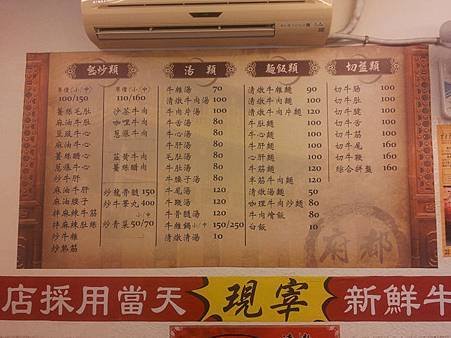 熱炒類
單價(小/中)
100/150
薑絲毛肚
麻油牛肚
豆豉牛心
麻油牛心
薑絲牛心
炒牛肝
麻油牛肝
麻油腰子
拌麻辣牛筋
拌麻辣肚絲
炒牛雜
單價(小/中)
110/160
沙茶牛肉
咖哩牛肉
蔥爆牛肉
韭黃牛肉
薑絲牛肉
炒龍骨髓 150
炒牛睪丸 400
小/中
炒青菜 50/70
湯類
牛雜湯 70
清燉牛肉湯 100
牛肉片湯 100
牛肚湯 80
牛舌湯 80
牛心湯 80
牛肝湯 80
牛筋湯 100
毛肚湯 80
牛腰子湯 80
牛尾湯 120
牛鞭湯 120
牛骨髓湯 120
牛雜鍋 小/中 150/250
清燉清湯 10
麵飯類
清燉牛雜麵 90
清燉牛肉麵 120
牛肉片麵 120
牛肚麵 100
牛舌麵 100
牛心麵 100
牛肝麵 100
牛筋麵 120
牛筋牛肉麵 120
清燉湯麵 50
咖哩牛肉炒麵 120
牛肉燴飯 80
白飯 10
切盤類
切牛腸 100
切牛肚 100
切牛腱 100
切牛舌 100
切牛筋 100
切牛尾 160
切牛鞭 160
綜合拼盤 160
府都
店採用當天 現宰 新鮮牛